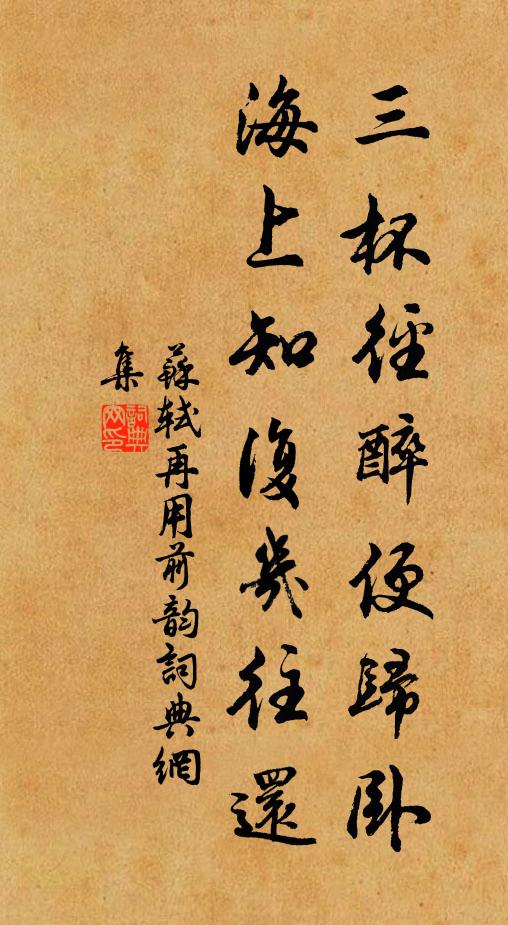 三杯徑醉便歸卧
海上知復幾往還
蘇軾再用前韵詞典網
集
詞典
网印